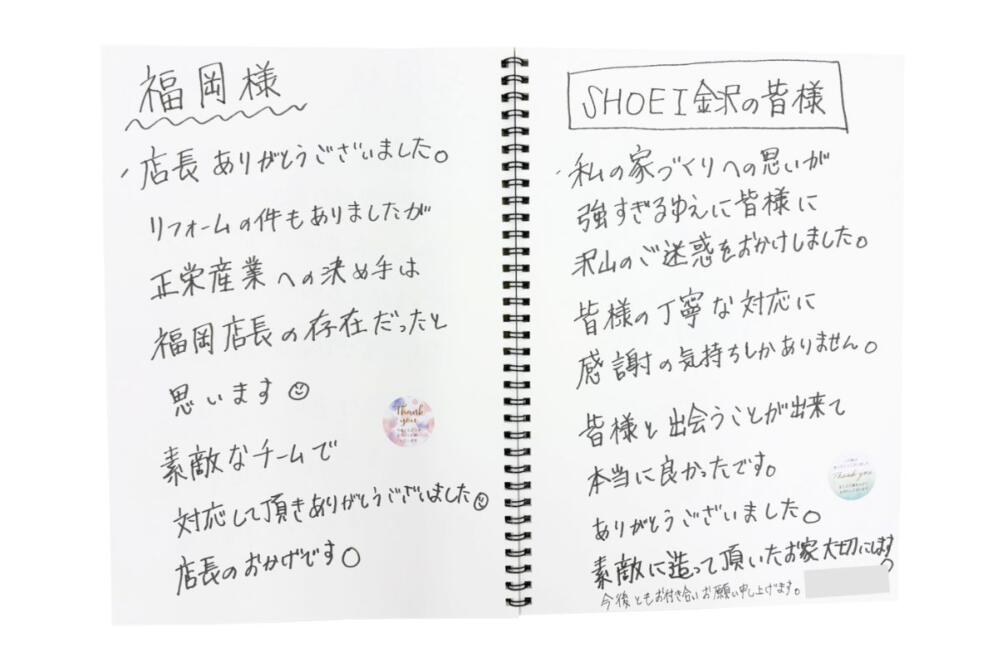 福岡様
店長ありがとうございました。
リフォームの件もありましたが
正栄産業への決め手は
福岡店長の存在だったと
思います☺
素敵なチームで
対応して頂きありがとうございました☺
店長のおかげです○
Thank you
SHOEI金沢の皆様
私の家づくりへの思いが
強すぎるゆえに皆様に
沢山のご迷惑をおかけしました。
皆様の丁寧な対応に
感謝の気持ちしかありません。
皆様と出会うことが出来て
本当に良かったです。
ありがとうございました。
素敵に造って頂いたお家大切にします
今後ともお付き合いお願い申し上げます。
Thank you